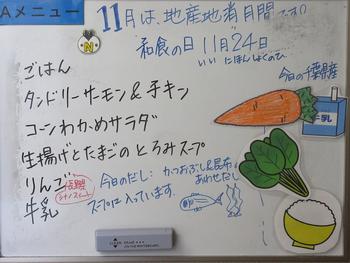 Aメニュー
11月は、地産地消月間です!!
和食の日 11月24日
いい にほんしょくのひ
N
今日の千葉県産
ごはん
タンドリーサーモン&チキン
コーンわかめサラダ
生揚げとたまごのとろみスープ
りんご
牛乳
今日のだし:かつおぶし&昆布
あわせだし
スープに入っています。
牛乳